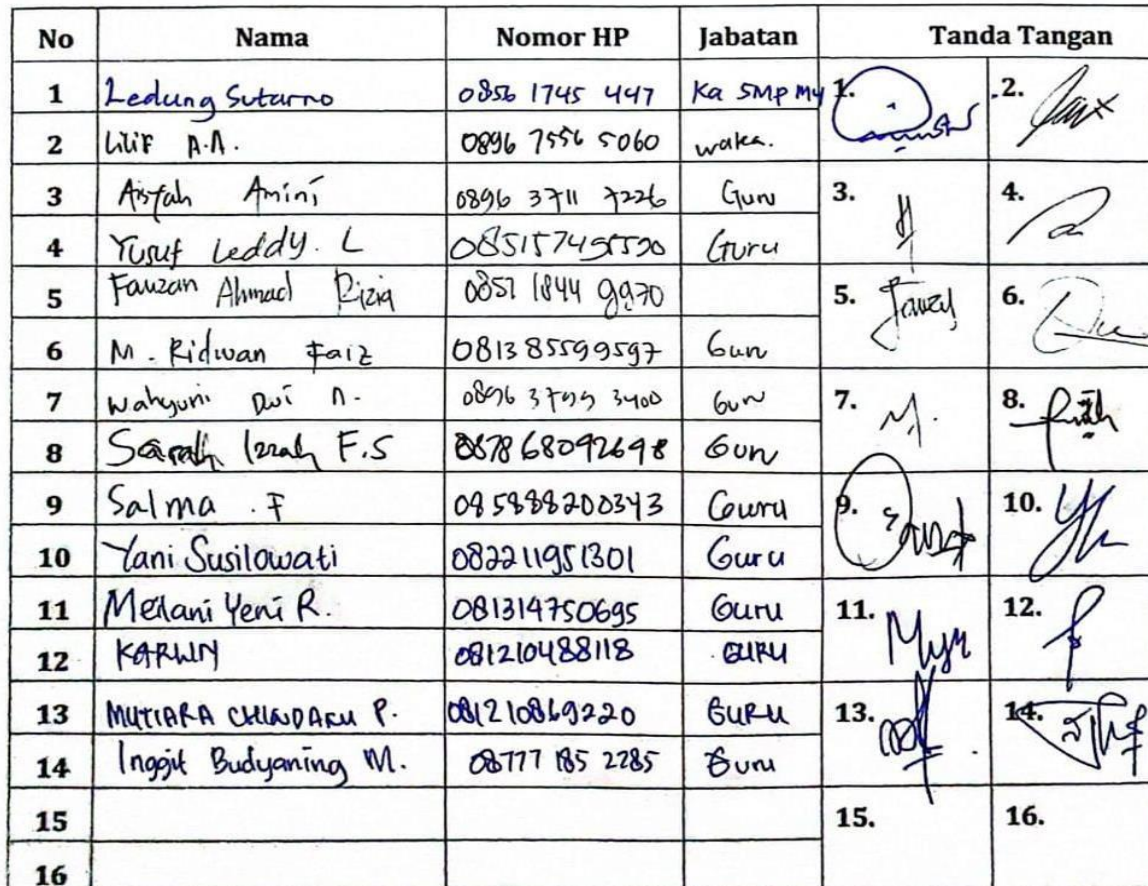 No Nama Nomor HP Jabatan Tanda Tangan
1 Ledung Sutarno 0856 1745 447 Ka SMP MY 1. 2.
2 Lilif A.A. 0896 7556 5060 waka.
3 Aisyah Amini 0896 3711 7226 Guru 3. 4.
4 Yusuf Leddy. L 085157495590 Guru
5 Fauzan Ahmad 0857 1844 9970 5. 6.
6 M. Ridwan Faiz 081385599597 Guru
7 Wahyuni Dwi n. 0896 3799 3400 Guru 7. 8.
8 Sarah Izzah F.S 087868092698 Guru
9 Salma . F 085888200343 Guru 9. 10.
10 Yani Susilowati 082211951301 Guru
11 Meilani Yeni R. 081314750695 Guru 11. 12.
12 KARWIN 081210488118 GURU
13 MUTIARA P. 081210869220 GURU 13. 14.
14 Inggit Budyaning M. 08777 185 2285 Guru
15 15. 16.
16